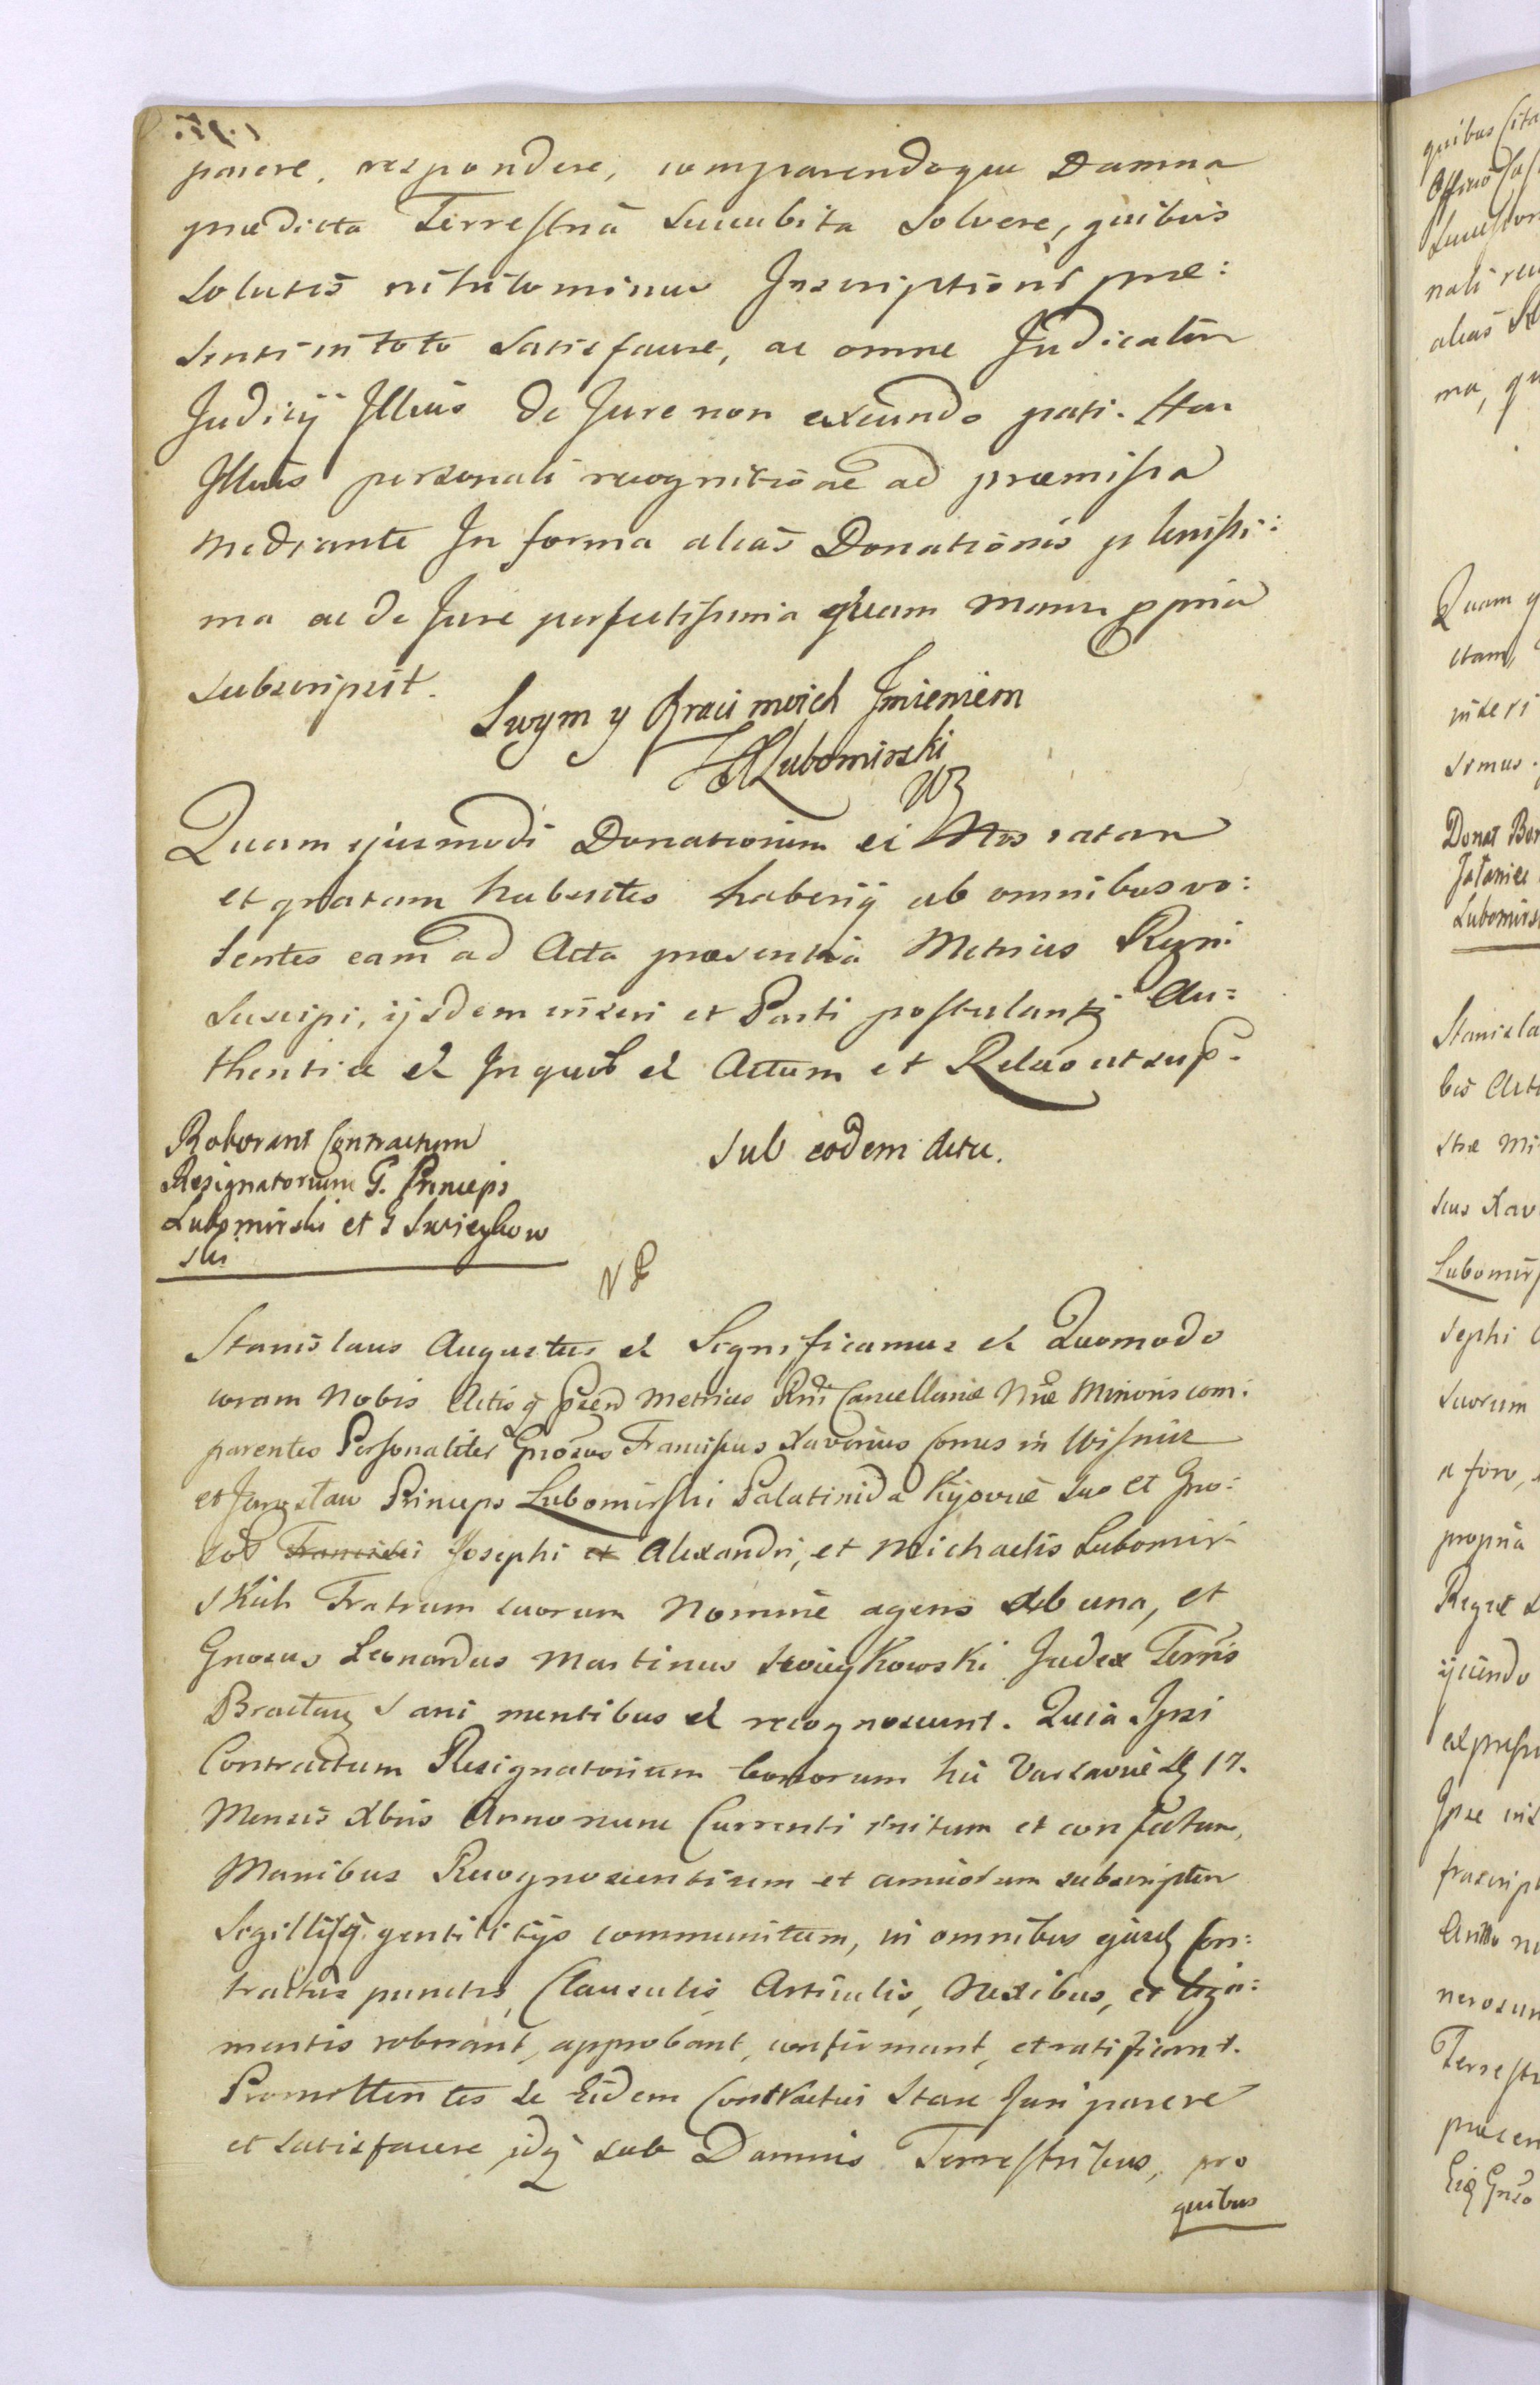 parere, respondere, comparendoque Damna
prædicta Terrestria succubita Solvere, quibus
Solutis nihilominus Inscriptioni præ:
senti in toto Satisfacere, ac omne Judicatum
Judicij Illius de Jure non exeundo pati. Hac
Illius personali recognitione ad præmissa
mediante In forma alias Donationis plenissi:
ma ac de Jure perfectissima quam manu ppria
subscripsit.
Swym y Braci moich Imieniem
Lubomirski
Quam ejusmodi Donationem ei Nos ratam
et gratam habentes haberiq ab omnibus vo:
lentes eam ad Acta præsentia Metrices Regni
Suscipi, ijsdem inseri et Parti postulanti Au=
thentice et In quoR et Actum et Relatio ut sup.
Roborant Contractum
Resignatorium G. Princeps
Lubomirski et G Swieykow
ski
Sub eodem Actu.
Stanislaus Augustus et Significamus et Quomodo
coram Nobis Actisq Psen Metrices Rni Cancellariæ Nræ Minoris com:
parentes Personaliter Gnosus Franciscus Xaverius Comes in Wisnicz
et Jaroslaw Princeps Lubomirski Palatinida Kijoviæ suo et Gno:
soR Francisci Josephi et Alexandri, et Michaelis Lubomir:
skich Fratrum suorum Nomine agens ab una, et
Gnosus Leonardus Martinus Swieykowski Judex Terris
Braclav Sani mentibus et recognoscunt. Quia Ipsi
Contractum Resignatorium bonorum hic Varsaviæ D 17.
Mensis Xbris Anno nunc Currenti initum et confectum,
Manibus Recognoscentium et amicorum subscriptum
Sigillisq gentilitijs communitum, in omnibus ejusd Con:
tractus punctis, Clausulis, Articulis, Nexibus, et liga:
mentis roborant, approbant, confirmant, et ratificant.
Promittentes se Eidem Contractui Stare Juri parere
et Satisfacere idq sub Damnis Terrestribus, pro
quibus